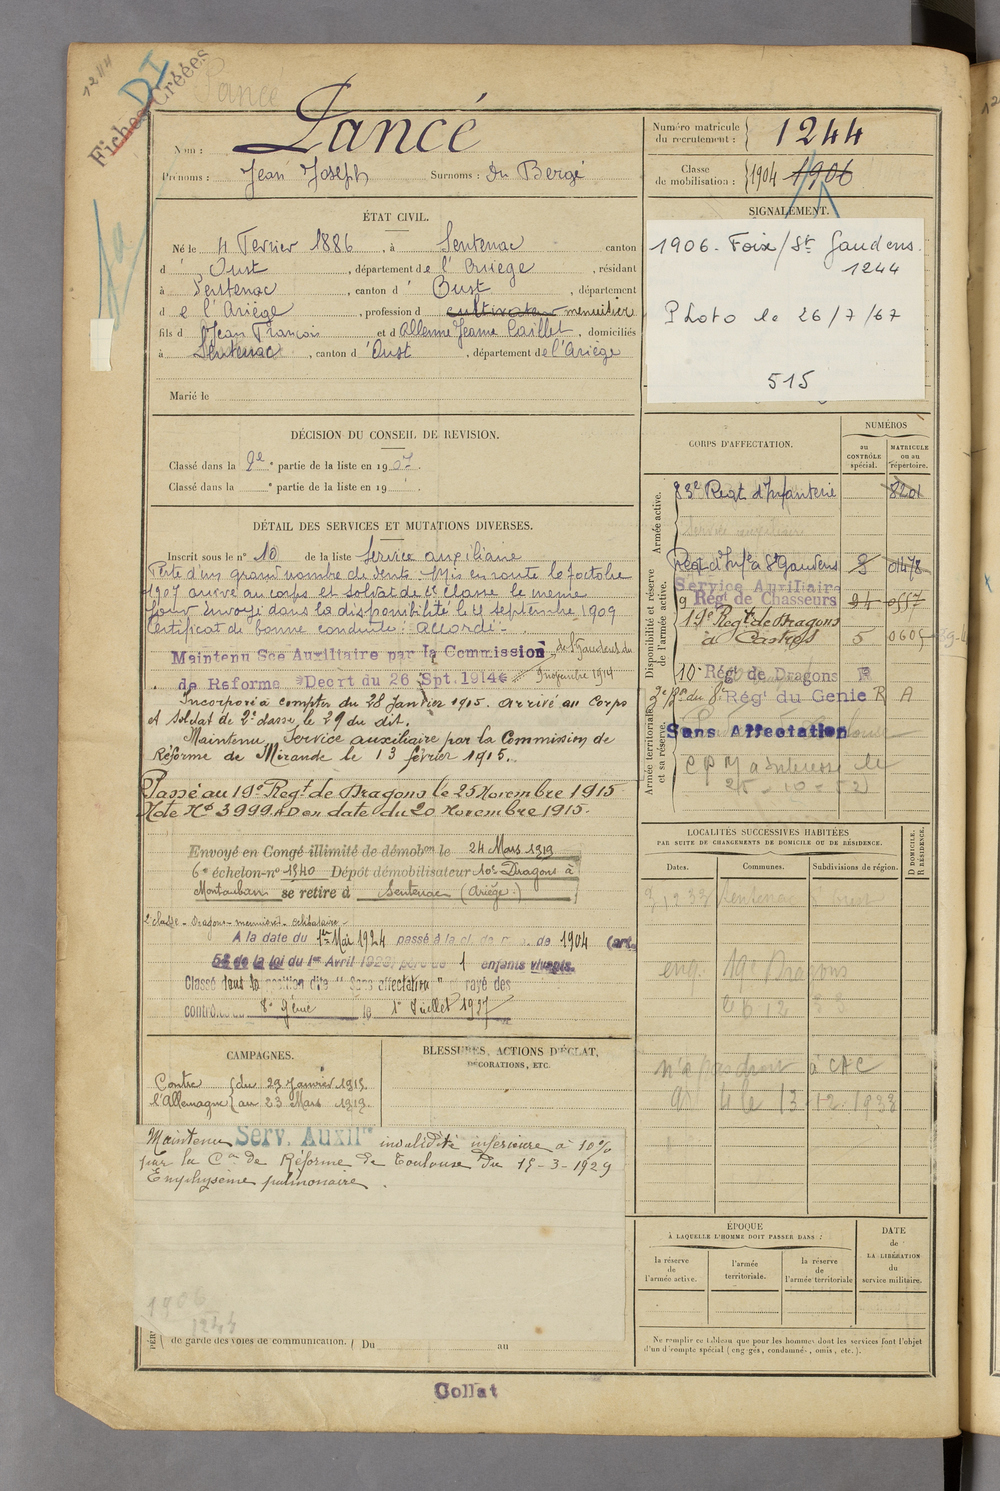 1244
DI
Fiches Créées
Lancé
Nom : Lancé
Prénoms : Jean Joseph Surnoms : du Bergé
Numéro matricule du recrutement : 1244
Classe de mobilisation : 1904 1906
ÉTAT CIVIL.
Né le 4 Février 1886, à Sentenac canton
d' Oust, département de l'Ariège, résidant
à Sentenac, canton d' Oust, département
de l'Ariège, profession d cultivateur menuisier
fils d Jean François et d Allemne Jeanne Caillet, domiciliés
à Sentenac, canton d'Oust, département de l'Ariège
Marié le
SIGNALEMENT.
1906. Foix/St Gaudens.
1244
Photo le 26/7/67
515
DÉCISION DU CONSEIL DE REVISION.
Classé dans la 9e partie de la liste en 1907.
Classé dans la e partie de la liste en 19
DÉTAIL DES SERVICES ET MUTATIONS DIVERSES.
Inscrit sous le n° 10 de la liste Service auxiliaire
Perte d'un grand nombre de dents. Mis en route le 7 octobre
1907 arrivé au corps et soldat de 2e classe le même
jour. Envoyé dans la disponibilité le 21 septembre 1909
Certificat de bonne conduite : "Accordé"
Maintenu Sce Auxiliaire par la Commission de St Gaudens du
de Reforme Décrt du 26 Spt. 1914 9 novembre 1914
Incorporé à compter du 28 Janvier 1915. Arrivé au Corps
et soldat de 2e classe, le 29 du dit.
Maintenu Service auxiliaire par la Commission de
Réforme de Mirande le 13 février 1915.
Passé au 19e Regt de Dragons le 25 Novembre 1915
Note N° 3999.AD en date du 20 Novembre 1915.
Envoyé en Congé illimité de démobon le 24 Mars 1919
6e échelon-n° 1340 Dépôt démobilisateur 10e Dragons à
Montauban se retire à Sentenac (Ariège.)
2e classe - Dragons - menuisier - célibataire -
A la date du 1er Mai 1924 passé à la cl. de de 1904 (art.
58 de la loi du 1er Avril 1923) père de 1 enfants vivants.
Classé dans la position dite "Sans affectation" rayé des
contrôles du 8e Génie le 1er Juillet 1927
CORPS D'AFFECTATION.
NUMÉROS
au CONTRÔLE spécial.
MATRICULE ou au répertoire.
Armée active.
83e Regt d'Infanterie 8201
Service auxiliaire
Disponibilité et réserve de l'armée active.
Regt d'Infie à St Gaudens S 01478
Service Auxiliaire
9 Régt de Chasseurs 24 0557
19e Regt de Dragons
à Castres 5 0605
10e Régt de Dragons R
Armée territoriale et sa réserve.
8e Régt du Genie R A
Sans Affectation
C P M a Interessé le
25-10-52
LOCALITÉS SUCCESSIVES HABITÉES
PAR SUITE DE CHANGEMENTS DE DOMICILE OU DE RÉSIDENCE.
Dates. Communes. Subdivisions de région. D DOMICILE. R RÉSIDENCE.
9.12.33 Sentenac d'Oust
env. 10e Dragons
le 6 12 33
n'a pas droit à CAC
le 13-12-1933
CAMPAGNES.
Contre l'Allemagne { du 29 Janvier 1915.
au 23 Mars 1919.
BLESSURES, ACTIONS D'ÉCLAT,
DÉCORATIONS, ETC.
Maintenu Serv. Auxilre invalidité inférieure à 10%
par la Con de Réforme de Toulouse du 15-3-1929
Emphysème pulmonaire.
1906
1244
de garde des voies de communication. { Du au
ÉPOQUE
À LAQUELLE L'HOMME DOIT PASSER DANS :
la réserve de l'armée active.
l'armée territoriale.
la réserve de l'armée territoriale
DATE de LA LIBÉRATION du service militaire.
Ne remplir ce tableau que pour les hommes dont les services font l'objet
d'un d'compte spécial (engagés, condamnés, omis, etc.).
Collat